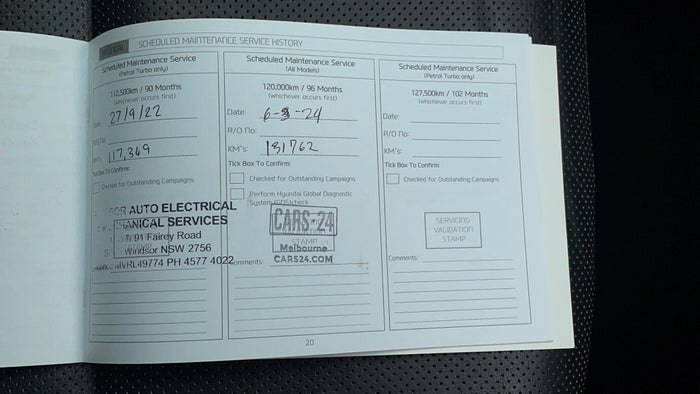 HYUNDAI SCHEDULED MAINTENANCE SERVICE HISTORY
Scheduled Maintenance Service
(Petrol Turbo only)
112,500km / 90 Months
(whichever occurs first)
Date: 27/9/22
R/O No:
KM's: 117,369
Tick Box To Confirm:
Checked for Outstanding Campaigns
AUTO ELECTRICAL
SERVICES
91 Fairey Road
Windsor NSW 2756
PH 4577 4022
Scheduled Maintenance Service
(All Models)
120,000km / 96 Months
(whichever occurs first)
Date: 6-3-24
R/O No:
KM's: 131762
Tick Box To Confirm:
Checked for Outstanding Campaigns
Perform Hyundai Global Diagnostic
System (GDS)check
CARS-24
STAMP
Melbourne
CARS24.COM
Comments:
Scheduled Maintenance Service
(Petrol Turbo only)
127,500km / 102 Months
(whichever occurs first)
Date:
R/O No:
KM's:
Tick Box To Confirm:
Checked for Outstanding Campaigns
SERVICING
VALIDATION
STAMP
Comments:
20